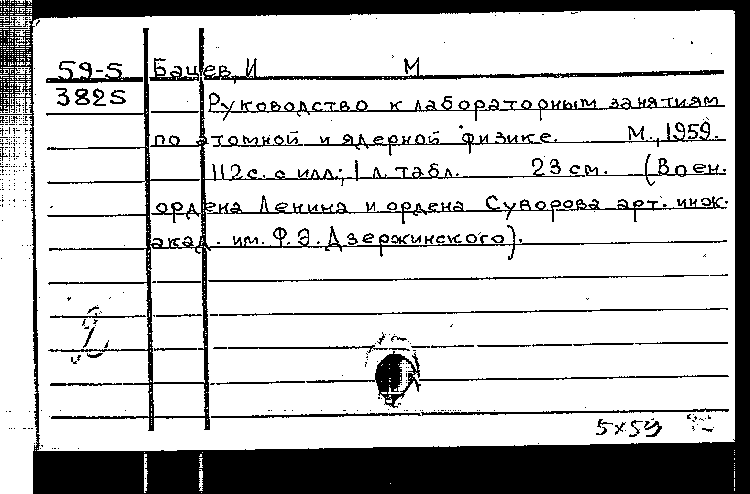 59-5 Бацев, И М
3825 Руководство к лабораторным занятиям
по атомной и ядерной физике. М., 1959.
112 с. с илл.; 1 л. табл. 23 см. (Воен.
ордена Ленина и ордена Суворова арт. инж.
акад. им. Ф.Э. Дзержинского).
2
5x59